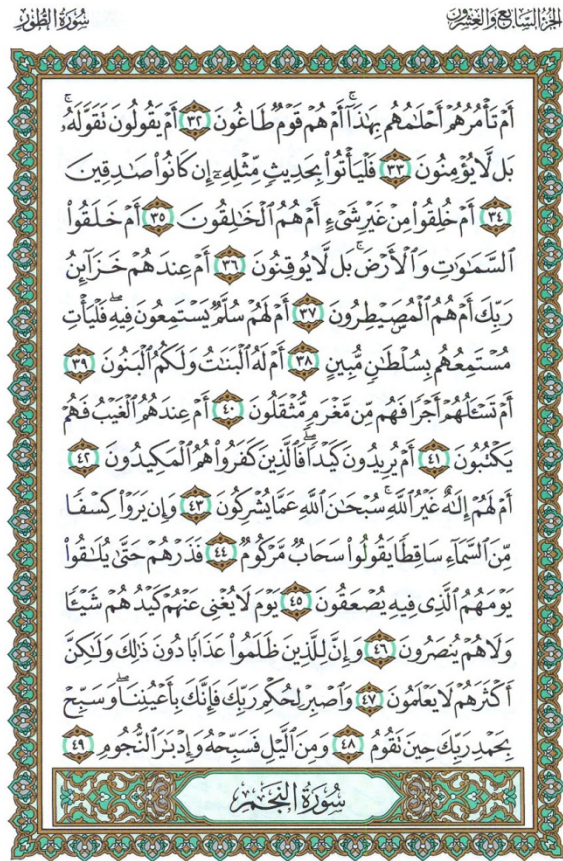 الجزء السابع والعشرون
سُورَةُ الطُّورِ
أَمْ تَأْمُرُهُمْ أَحْلَٰمُهُم بِهَٰذَآ ۚ أَمْ هُمْ قَوْمٌ طَاغُونَ ٣٢ أَمْ يَقُولُونَ تَقَوَّلَهُۥ ۚ
بَل لَّا يُؤْمِنُونَ ٣٣ فَلْيَأْتُوا۟ بِحَدِيثٍ مِّثْلِهِۦٓ إِن كَانُوا۟ صَٰدِقِينَ
٣٤ أَمْ خُلِقُوا۟ مِنْ غَيْرِ شَىْءٍ أَمْ هُمُ ٱلْخَٰلِقُونَ ٣٥ أَمْ خَلَقُوا۟
ٱلسَّمَٰوَٰتِ وَٱلْأَرْضَ ۚ بَل لَّا يُوقِنُونَ ٣٦ أَمْ عِندَهُمْ خَزَآئِنُ
رَبِّكَ أَمْ هُمُ ٱلْمُصَۣيْطِرُونَ ٣٧ أَمْ لَهُمْ سُلَّمٌ يَسْتَمِعُونَ فِيهِ ۖ فَلْيَأْتِ
مُسْتَمِعُهُم بِسُلْطَٰنٍ مُّبِينٍ ٣٨ أَمْ لَهُ ٱلْبَنَٰتُ وَلَكُمُ ٱلْبَنُونَ ٣٩
أَمْ تَسْـَٔلُهُمْ أَجْرًا فَهُم مِّن مَّغْرَمٍ مُّثْقَلُونَ ٤٠ أَمْ عِندَهُمُ ٱلْغَيْبُ فَهُمْ
يَكْتُبُونَ ٤١ أَمْ يُرِيدُونَ كَيْدًا ۖ فَٱلَّذِينَ كَفَرُوا۟ هُمُ ٱلْمَكِيدُونَ ٤٢
أَمْ لَهُمْ إِلَٰهٌ غَيْرُ ٱللَّهِ ۚ سُبْحَٰنَ ٱللَّهِ عَمَّا يُشْرِكُونَ ٤٣ وَإِن يَرَوْا۟ كِسْفًا
مِّنَ ٱلسَّمَآءِ سَاقِطًا يَقُولُوا۟ سَحَابٌ مَّرْكُومٌ ٤٤ فَذَرْهُمْ حَتَّىٰ يُلَٰقُوا۟
يَوْمَهُمُ ٱلَّذِى فِيهِ يُصْعَقُونَ ٤٥ يَوْمَ لَا يُغْنِى عَنْهُمْ كَيْدُهُمْ شَيْـًٔا
وَلَا هُمْ يُنصَرُونَ ٤٦ وَإِنَّ لِلَّذِينَ ظَلَمُوا۟ عَذَابًا دُونَ ذَٰلِكَ وَلَٰكِنَّ
أَكْثَرَهُمْ لَا يَعْلَمُونَ ٤٧ وَٱصْبِرْ لِحُكْمِ رَبِّكَ فَإِنَّكَ بِأَعْيُنِنَا ۖ وَسَبِّحْ
بِحَمْدِ رَبِّكَ حِينَ تَقُومُ ٤٨ وَمِنَ ٱلَّيْلِ فَسَبِّحْهُ وَإِدْبَٰرَ ٱلنُّجُومِ ٤٩
سُورَةُ النَّجْمِ